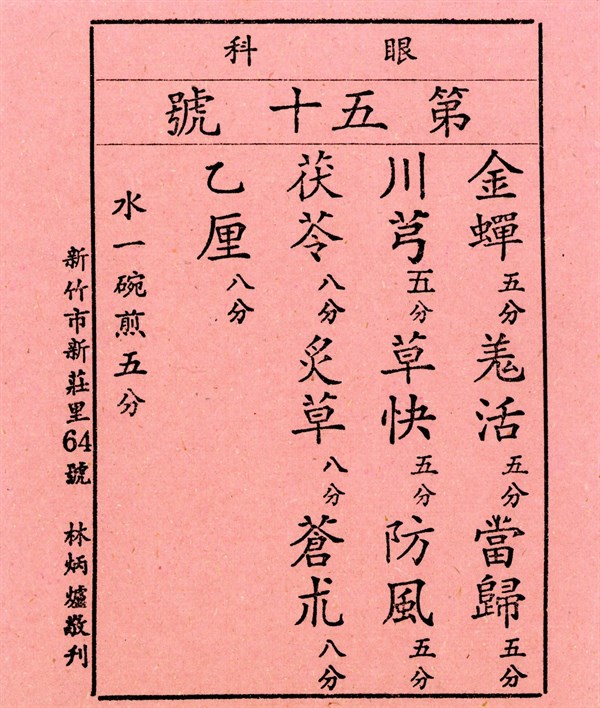 眼科
第五十號
金蟬五分羗活五分當歸五分
川芎五分草快五分防風五分
茯苓八分炙草八分蒼朮八分
乙厘八分
水一碗煎五分
新竹市新莊里64號 林炳爐敬刊